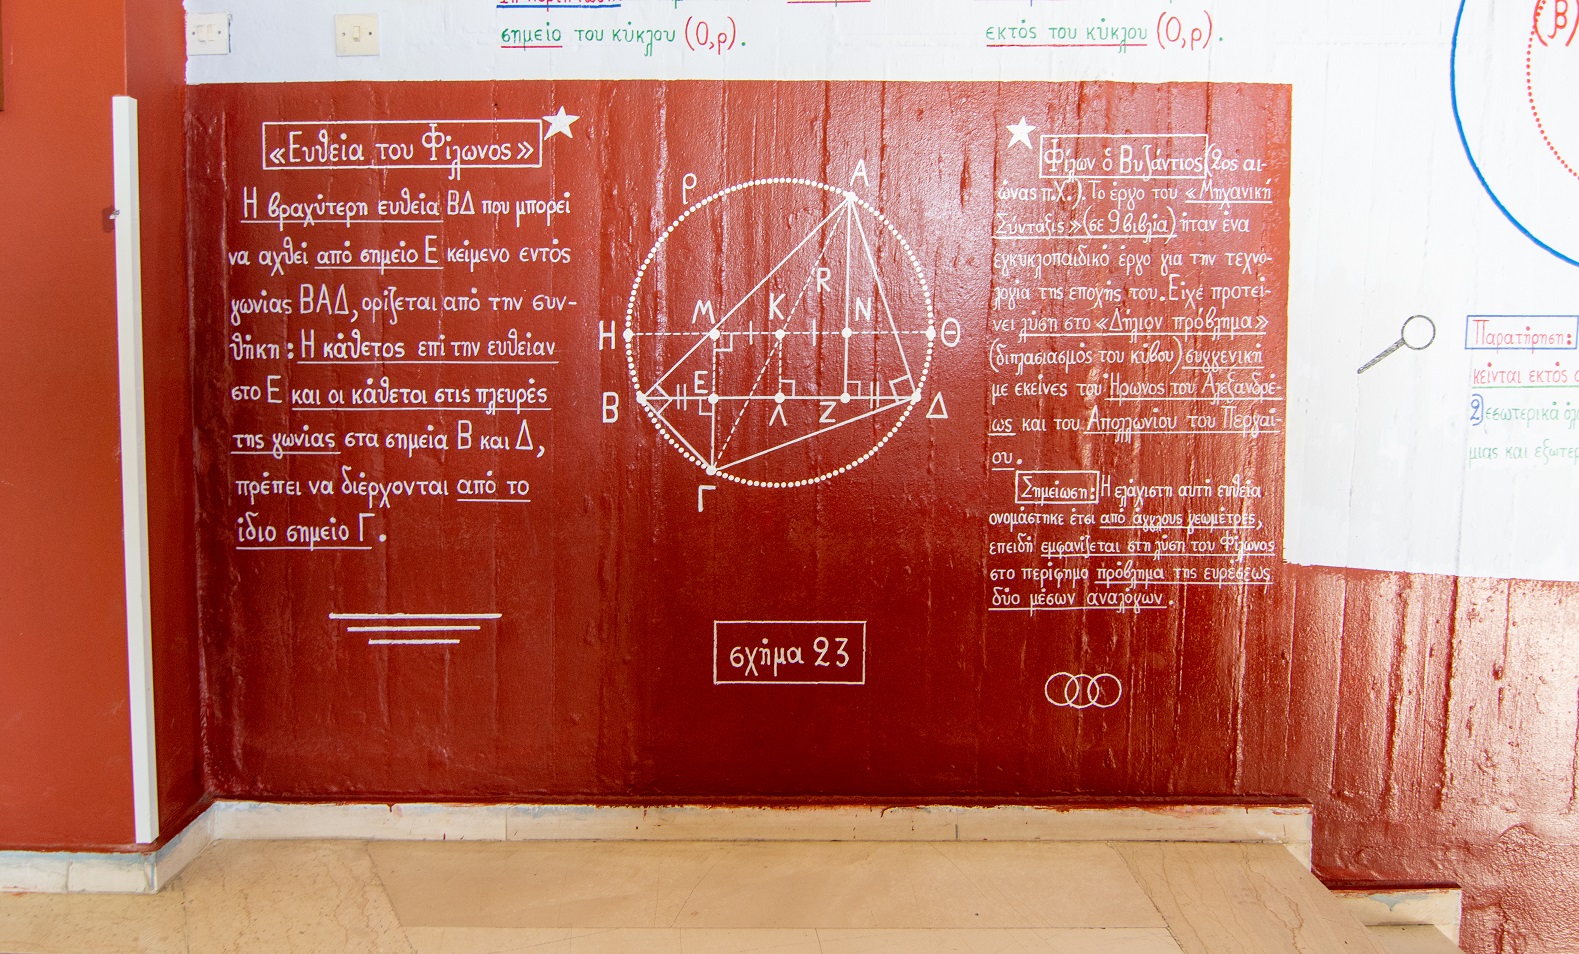 σημείο του κύκλου (Ο,ρ).
εκτός του κύκλου (Ο,ρ).
(β)
«Ευθεία του Φίλωνος»
Η βραχύτερη ευθεία ΒΔ που μπορεί
να αχθεί από σημείο Ε κείμενο εντός
γωνίας ΒΑΔ, ορίζεται από την συν-
θήκη: Η κάθετος επί την ευθείαν
στο Ε και οι κάθετοι στις πλευρές
της γωνίας στα σημεία Β και Δ,
πρέπει να διέρχονται από το
ίδιο σημείο Γ.
ρ
Α
R
Μ
Κ
Ν
Η
Θ
Β
Ε
Λ
Ζ
Δ
Γ
σχήμα 23
Φίλων ὁ Βυζάντιος (2ος αι-
ώνας π.Χ.). Το έργο του «Μηχανική
Σύνταξις» (σε 9 βιβλία) ήταν ένα
εγκυκλοπαιδικό έργο για την τεχνο-
λογία της εποχής του. Είχε προτεί-
νει λύση στο «Δήλιον πρόβλημα»
(διπλασιασμός του κύβου) συγγενική
με εκείνες του Ήρωνος του Αλεξανδρέ-
ως και του Απολλωνίου του Περγαί-
ου.
Σημείωση: Η ελάχιστη αυτή ευθεία
ονομάστηκε έτσι από άγγλους γεωμέτρες,
επειδή εμφανίζεται στη λύση του Φίλωνος
στο περίφημο πρόβλημα της ευρέσεως
δύο μέσων αναλόγων.
Παρατήρηση:
κείνται εκτός
2) εσωτερικά
μιας και